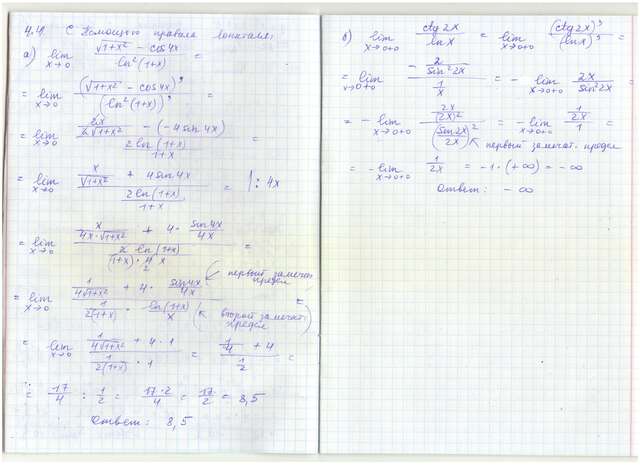 4.4. С Помощью правила Лопиталя:
а) lim x→0 (√(1+x²) - cos4x) / (ln²(1+x)) =
= lim x→0 (√(1+x²) - cos4x)' / (ln²(1+x))' =
= lim x→0 (2x / 2√(1+x²) - (-4sin4x)) / (2ln(1+x) / 1+x) =
= lim x→0 (x / √(1+x²) + 4sin4x) / (2ln(1+x) / 1+x) = |: 4x
= lim x→0 (x / 4x·√(1+x²) + 4· sin4x / 4x) / (2 ln(1+x) / (1+x)·4x) =
= lim x→0 (1 / 4√(1+x²) + 4· sin4x / 4x) / (1 / 2(1+x) · ln(1+x) / x) =
первый замечат. предел
второй замечат. предел
= lim x→0 (1 / 4√(1+x²) + 4·1) / (1 / 2(1+x) · 1) = (1/4 + 4) / (1/2) =
= 17/4 : 1/2 = 17·2 / 4 = 17/2 = 8,5
Ответ: 8,5
б) lim x→0+0 ctg2x / lnx = lim x→0+0 (ctg2x)' / (lnx)' =
= lim x→0+0 (- 2 / sin²2x) / (1/x) = - lim x→0+0 2x / sin²2x =
= - lim x→0+0 (2x / (2x)²) / (sin2x / 2x)² = - lim x→0+0 (1/2x) / 1 =
первый замечат. предел
= - lim x→0+0 1/2x = -1·(+∞) = -∞
Ответ: -∞